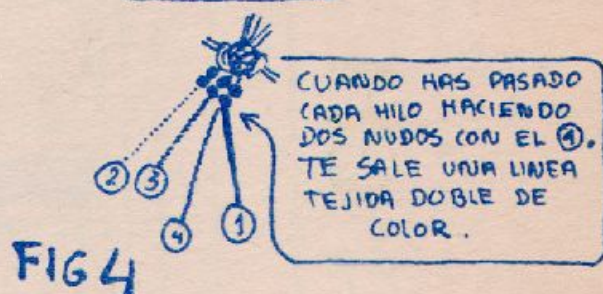 CUANDO HAS PASADO
CADA HILO HACIENDO
DOS NUDOS CON EL ①.
TE SALE UNA LINEA
TEJIDA DOBLE DE
COLOR.
② ③ ④ ①
FIG 4